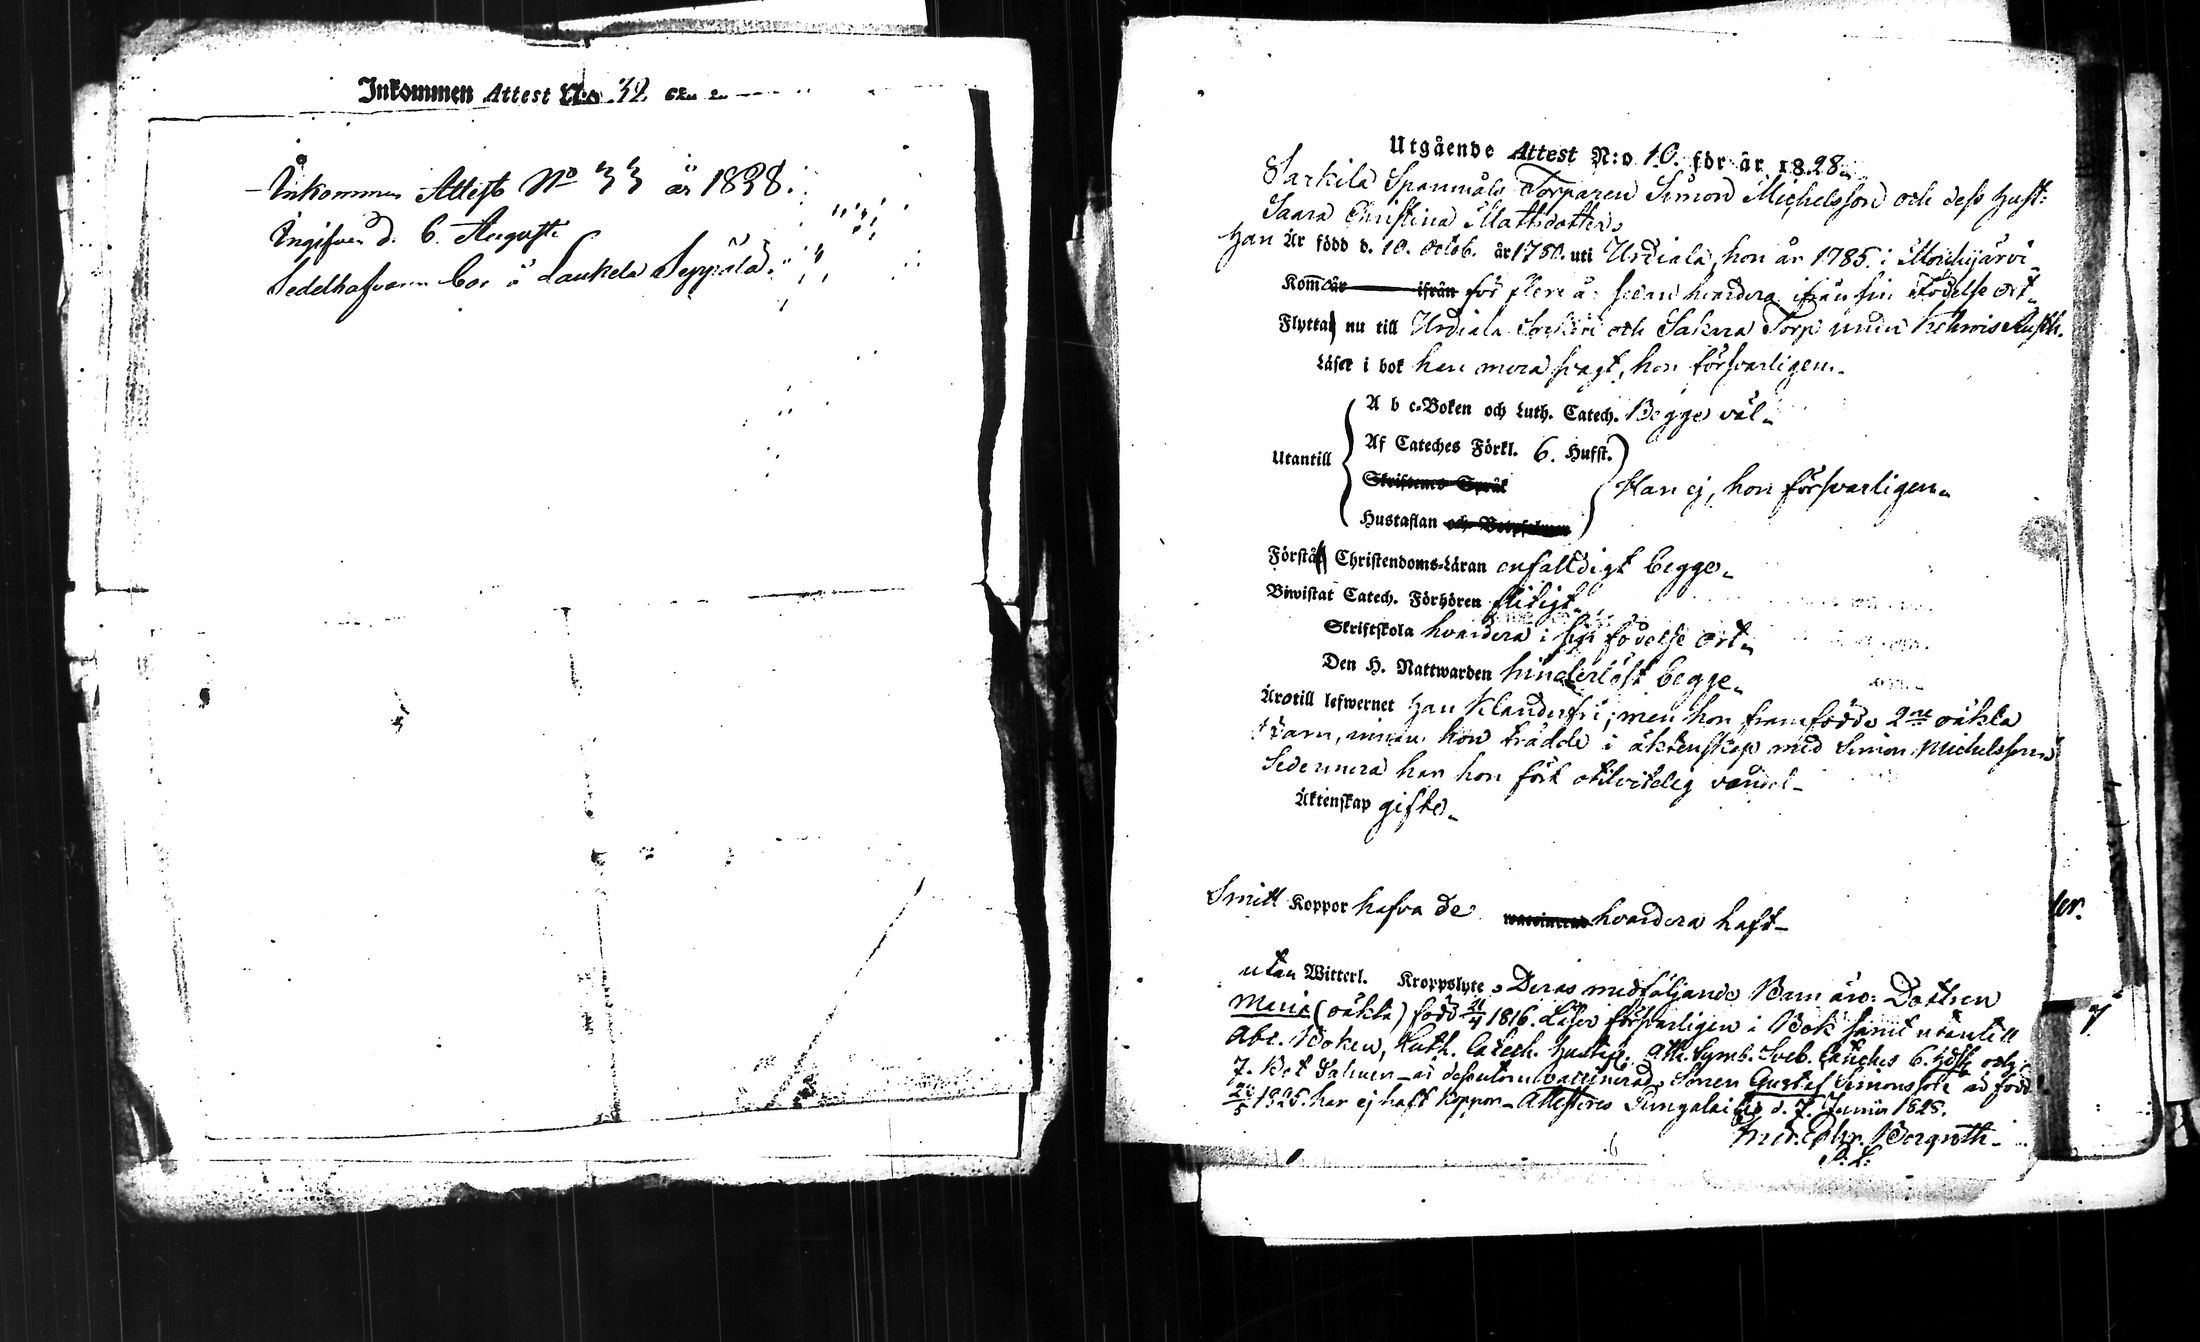 Inkommen Attest N:o 32
Inkommen Attest No 33 år 1828.
Ingifven d. 6. Augusti
Sedelhafvaren bor å Laukela Seppälä.
Utgående Attest N:o 10. för år 1828.
Sarkila Spannmåls Torparen Simon Michelsson och dess Hust:
Saara Christina Mattsdotter.
Han Är född d. 10. Octob. år 1780. uti Urdiala, hon år 1785. i Mouhijärvi
Kom̅ ifrån för flere år sedan hvardera ifrån sin Födelse ort
Flytta nu till Urdiala Sockn och Torp under
Läser i bok han mera svagt, hon försvarligen.
Utantill
A b c-Boken och Luth. Catech. Begge väl
Af Cateches Förkl. 6. Hufst.
Skriftenes Språk
Han ej, hon försvarligen
Hustaflan och Botpsalmen
Förstå Christendoms-Läran enfaldigt begge
Biwistat Catech. Förhören flitigt
Skriftskola hvardera i sin födelse ort
Den H. Nattwarden hinderlöst begge
Äro till lefwernet Han klanderfri; men hon framfödde 2ne oäkta
barn, innan hon trädde i äktenskap med Simon Michelsson
Sedermera har hon fört otilvitelig vandel
Äktenskap gifte
Smitt Koppor hafva de hvardera haft
utan Witterl. Kroppslyte. Deras medföljande Barn äro: Dottren
Maria (oäkta) född 1816. Läser försvarligen i Bok samt utantill
Abc. Boken, Luth. Catech. Hustafl. Ath. Symb. Sveb. Cateches 6. Hdst. och
7. Bot Salmen är dessutom vaccinerad. Sonen Gustaf Simonsson är född
1825. har ej haft koppor. Attesteras Pungalaitio d. 7. Junii 1828.
Fred. Ephr. Bergroth